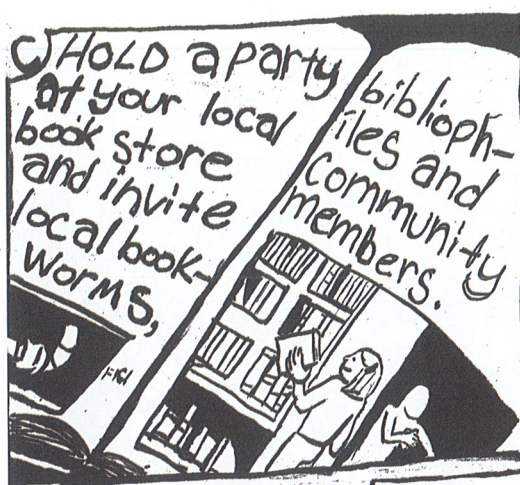 c) HOLD a party
at your local
book store
and invite
local book-
worms,
biblioph-
iles and
community
members.